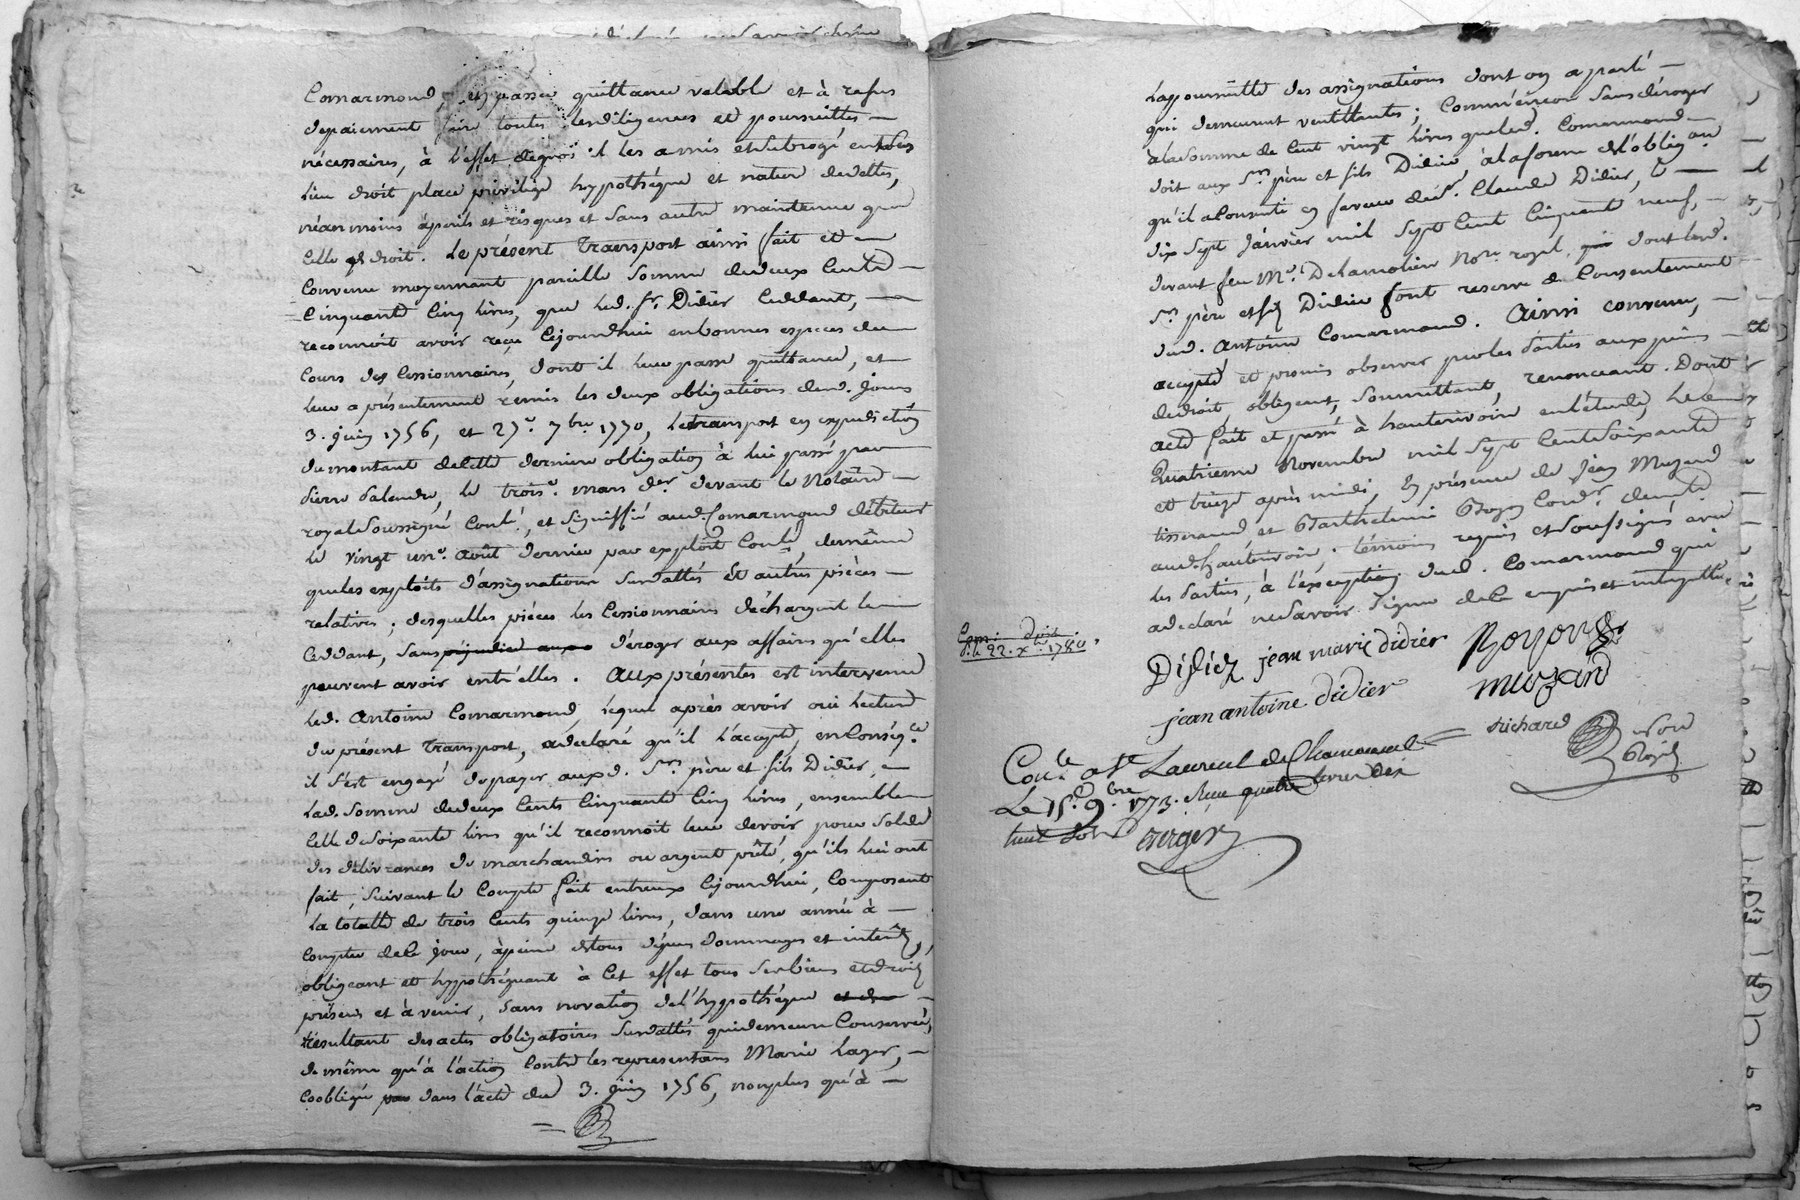 Comarmond, et passer quittance valable et à refus
depaiement faire toutes les diligences et poursuittes —
nécessaires, à l'effet dequoi il les a mis et subrogé en tous
lieu droit place privilége hypothéque et nature desdettes,
néanmoins à périls et risques et sans autre maintenue que
celle de droit. Le présent transport ainsi fait et —
convenu moyennant pareille somme dedeux cents —
cinquante cinq livres, que led. sr. Didier cedant, —
reconnoit avoir reçu cejourdhui en bonnes especes du
cours des cessionnaires, dont il leur passe quittance, et
leur a présentement remis les deux obligations desd. jours
3. juin 1756, et 27e. 7bre 1770, letransport en expedition
du montant delette derniere obligation à lui passé par
Pierre Palendre, le troise. mars der. devant le Notaire —
royal soussigné Conlé., et signiffié aud. Comarmond débiteur
le vingt une. août dernier par exploit Conlé, demême
queles exploits d'assignation susdattés et autres pièces —
relatives; desquelles pièces les cessionnaires déchargent le
cedant, sans préjudicier aux déroger aux affaires qu'elles
peuvent avoir entr'elles. Aux présentes est intervenu
led. Antoine Comarmond, lequel après avoir oui lecture
du présent transport, adeclaré qu'il l'accepte, en conséq.ce
il s'est engagé depayer auxd. Srs. père et fils Didier, —
lad. somme dedeux cents cinquante cinq livres, ensemble
celle desoixante livres qu'il reconnoit leur devoir pour solde
des délivrances de marchandises ou argent prêté, qu'ils lui ont
fait, suivant le compte fait entreux cejourdhui, composant
la totalle de trois cents quinze livres, dans une année à —
compter dece jour, àpeine detous dépens dommages et intérêts,
obligeant et hypothéquant à cet effet tous ses biens et droits
présens et àvenir, sans novation del'hypothéque et des —
résultant desactes obligatoires susdattés quidemeure conservée,
demême qu'à l'action contre les representans Marie Lager, —
coobligée par dans l'acte du 3. juin 1756, nonplus qu'à —
lapoursuitte des assignations dont on aparlé —
qui demeurent ventillantes; comm'encore sans déroger
àlasomme de cent vingt livres queled. Comarmond
doit aux Srs. père et fils Didier àlaforme del'oblig.on
qu'il aconsenti en faveur dud. sr. Claude Didier, le —
dix sept janvier mil sept cent cinquante neuf, —
devant feu Me. Delamoliere Nore. royal, qui dont lesd.
Srs. père et fils Didier font reserve du consentement
dud. Antoine Comarmond. Ainsi convenu, —
accepté et promis observer parles parties aux peines
dedroit, obligeant, soumettant, renonceant. Dont
acte fait et passé à hauterivoire en l'étude, le
quatrieme Novembre mil sept cents soixante
et treize après midi, en présence de Jean Muzard
tisserand et Barthelemi Boyon Cord.r demts.
aud. hauterivoire, témoins requis et soussignés avec
les parties, à l'exception dud. Comarmond qui
adeclaré nesavoir signer dece enquis et interpellé
22. xbre 1780.
Didier jean marie didier Boyon
jean antoine didier muzard
richard
Conlé. a St Laurent de Chamousset
Le 15e. 9bre 1773. Reçu quatre livres dix
huit sols